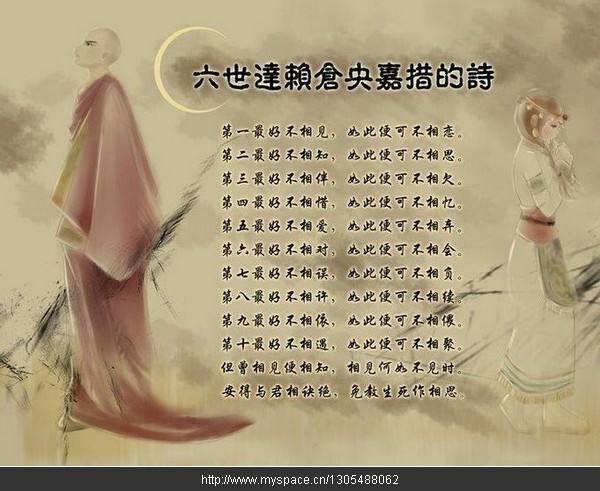 六世達賴倉央嘉措的詩
第一最好不相見，如此便可不相恋。
第二最好不相知，如此便可不相思。
第三最好不相伴，如此便可不相欠。
第四最好不相惜，如此便可不相忆。
第五最好不相爱，如此便可不相弃。
第六最好不相对，如此便可不相会。
第七最好不相误，如此便可不相负。
第八最好不相许，如此便可不相续。
第九最好不相依，如此便可不相偎。
第十最好不相遇，如此便可不相聚。
但曾相見便相知，相見何如不見时。
安得与君相诀绝，免教生死作相思。
http://www.myspace.cn/1305488062